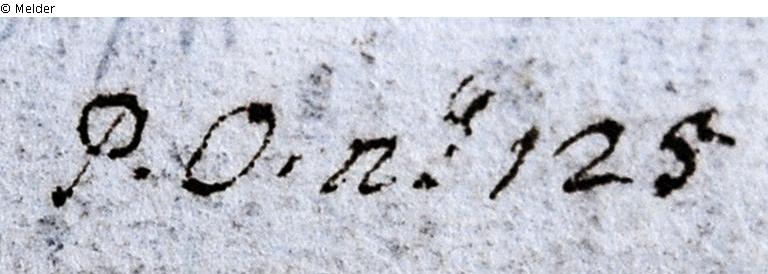 © Melder
P. O. nº 125